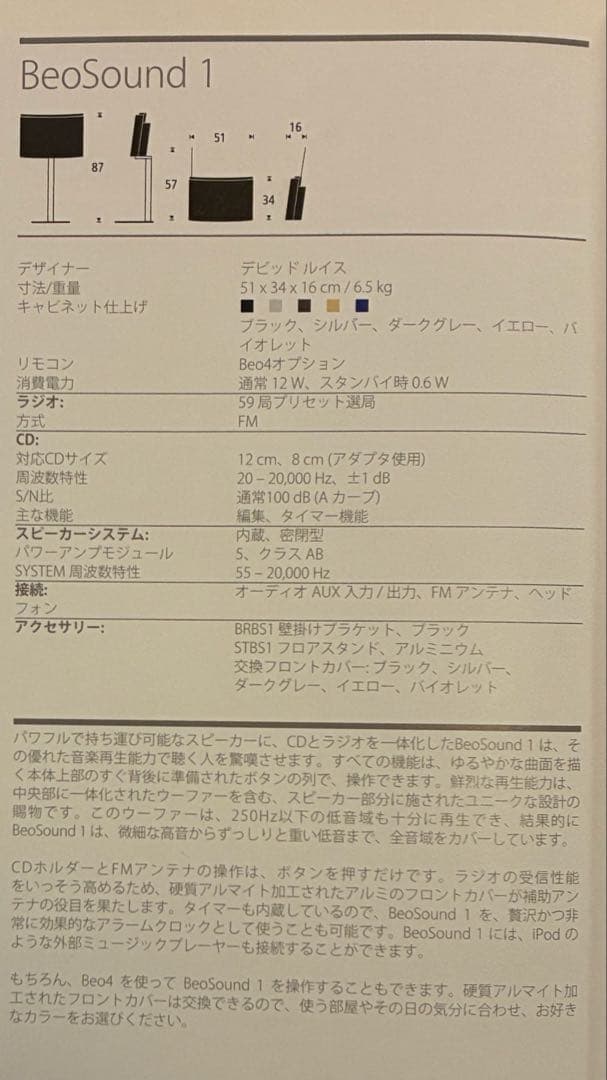 BeoSound 1
87
57
51
34
16
デザイナー デビッド ルイス
寸法/重量 51 x 34 x 16 cm / 6.5 kg
キャビネット仕上げ
ブラック、シルバー、ダークグレー、イエロー、バ
イオレット
リモコン Beo4オプション
消費電力 通常 12 W、スタンバイ時 0.6 W
ラジオ: 59 局プリセット選局
方式 FM
CD:
対応CDサイズ 12 cm、8 cm (アダプタ使用)
周波数特性 20 – 20,000 Hz、±1 dB
S/N比 通常100 dB (A カーブ)
主な機能 編集、タイマー機能
スピーカーシステム: 内蔵、密閉型
パワーアンプモジュール 5、クラス AB
SYSTEM 周波数特性 55 – 20,000 Hz
接続: オーディオ AUX 入力 / 出力、FM アンテナ、ヘッド
フォン
アクセサリー: BRBS1 壁掛けブラケット、ブラック
STBS1 フロアスタンド、アルミニウム
交換フロントカバー: ブラック、シルバー、
ダークグレー、イエロー、バイオレット
パワフルで持ち運び可能なスピーカーに、CDとラジオを一体化したBeoSound 1 は、そ
の優れた音楽再生能力で聴く人を驚嘆させます。すべての機能は、ゆるやかな曲面を描
く本体上部のすぐ背後に準備されたボタンの列で、操作できます。鮮烈な再生能力は、
中央部に一体化されたウーファーを含む、スピーカー部分に施されたユニークな設計の
賜物です。このウーファーは、250Hz以下の低音域も十分に再生でき、結果的に
BeoSound 1 は、微細な高音からずっしりと重い低音まで、全音域をカバーしています。
CDホルダーとFMアンテナの操作は、ボタンを押すだけです。ラジオの受信性能
をいっそう高めるため、硬質アルマイト加工されたアルミのフロントカバーが補助アン
テナの役目を果たします。タイマーも内蔵しているので、BeoSound 1 を、贅沢かつ非
常に効果的なアラームクロックとして使うことも可能です。BeoSound 1 には、iPod の
ような外部ミュージックプレーヤーも接続することができます。
もちろん、Beo4 を使って BeoSound 1 を操作することもできます。硬質アルマイト加
工されたフロントカバーは交換できるので、使う部屋やその日の気分に合わせ、お好き
なカラーをお選びください。